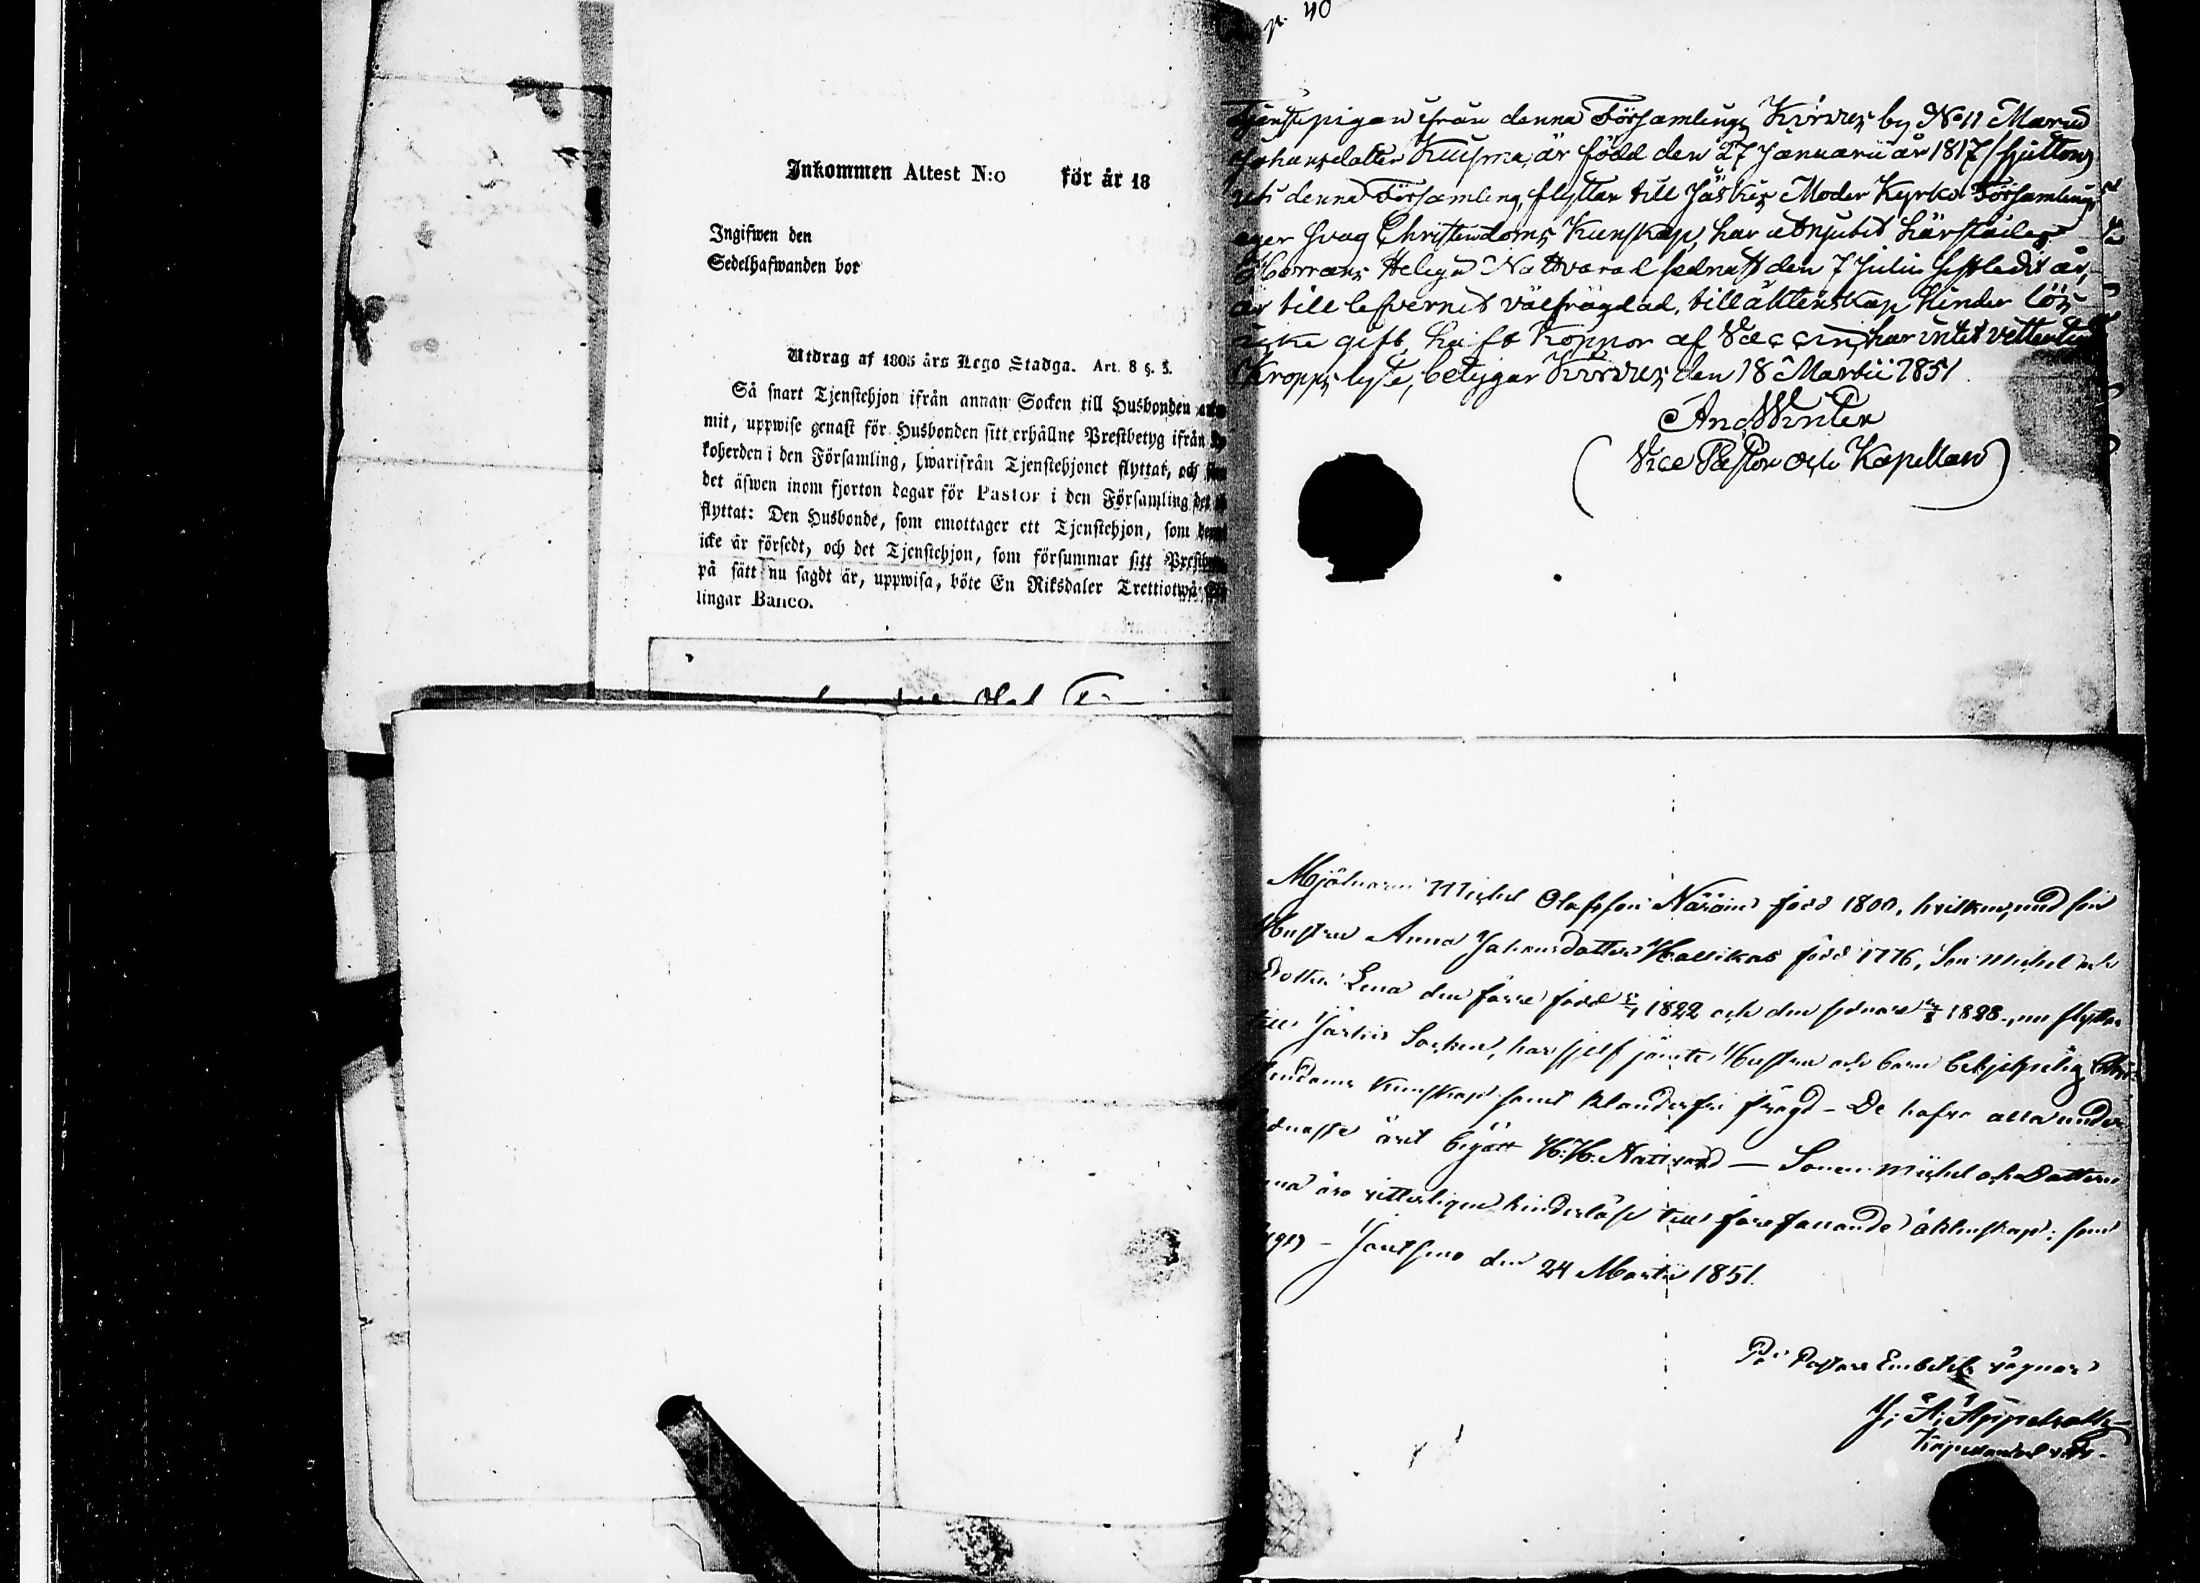 Inkommen Attest N:o för år 18
Ingifwen den
Sedelhafwanden bor
Utdrag af 1805 års Lego Stadga. Art. 8 §. 3.
Så snart Tjenstehjon ifrån annan Socken till Husbonden
mit, uppwise genast för Husbonden sitt erhållne Prestbetyg ifrån
koherden i den Församling, hwarifrån Tjenstehjonet flyttat, och
det äfwen inom fjorton dagar för Pastor i den Församling det
flyttat: Den Husbonde, som emottager ett Tjenstehjon, som
icke är försedt, och det Tjenstehjon, som försummar sitt
på sätt nu sagdt är, uppwisa, böte En Riksdaler Trettiotwå
lingar Banco.
40
Tjenstepigan ifrån denna Församlings Kirvus by No 11 Maria
Johansdotter Kuisma, är född den 27 Januarii år 1817 /sjutton/
uti denna Församling, flyttar till Jäskis Moder Kyrko Församling
äger svag Christendoms Kunskap, har åtnjutit härstädes
Herrans Heliga Nattvard sednast den 7 Julii sistledit år,
är till lefvernet välfrägdad, till äktenskap hinder lös
icke gift, haft Koppor af Vaccin, har intet vetterligt
Kropps lyte, betygar Kirvus den 18 Martii 1851.
And Winter
(Vice Pastor och Kapellan)
Mjölnaren Michel Olofsson Näräin född 1800, hvilken, med sin
Hustru Anna Johansdotter Hallikas född 1776, Son Michel och
Dotter Lena den förre född 1822 och den sednare 1828, nu flyttar
till Jäskis Socken, har sjelf jämte Hustru och barn behjelpelig Chri-
stendoms Kunskap samt klanderfri frägd - De hafva alla under
sednaste året begått H. H. Nattvard — Sonen Michel och Dottren
äro vitterligen hinderlöse till förefallande äktenskap; som
- Joutseno den 24 Martii 1851.
På Pastors Embetets vägnar